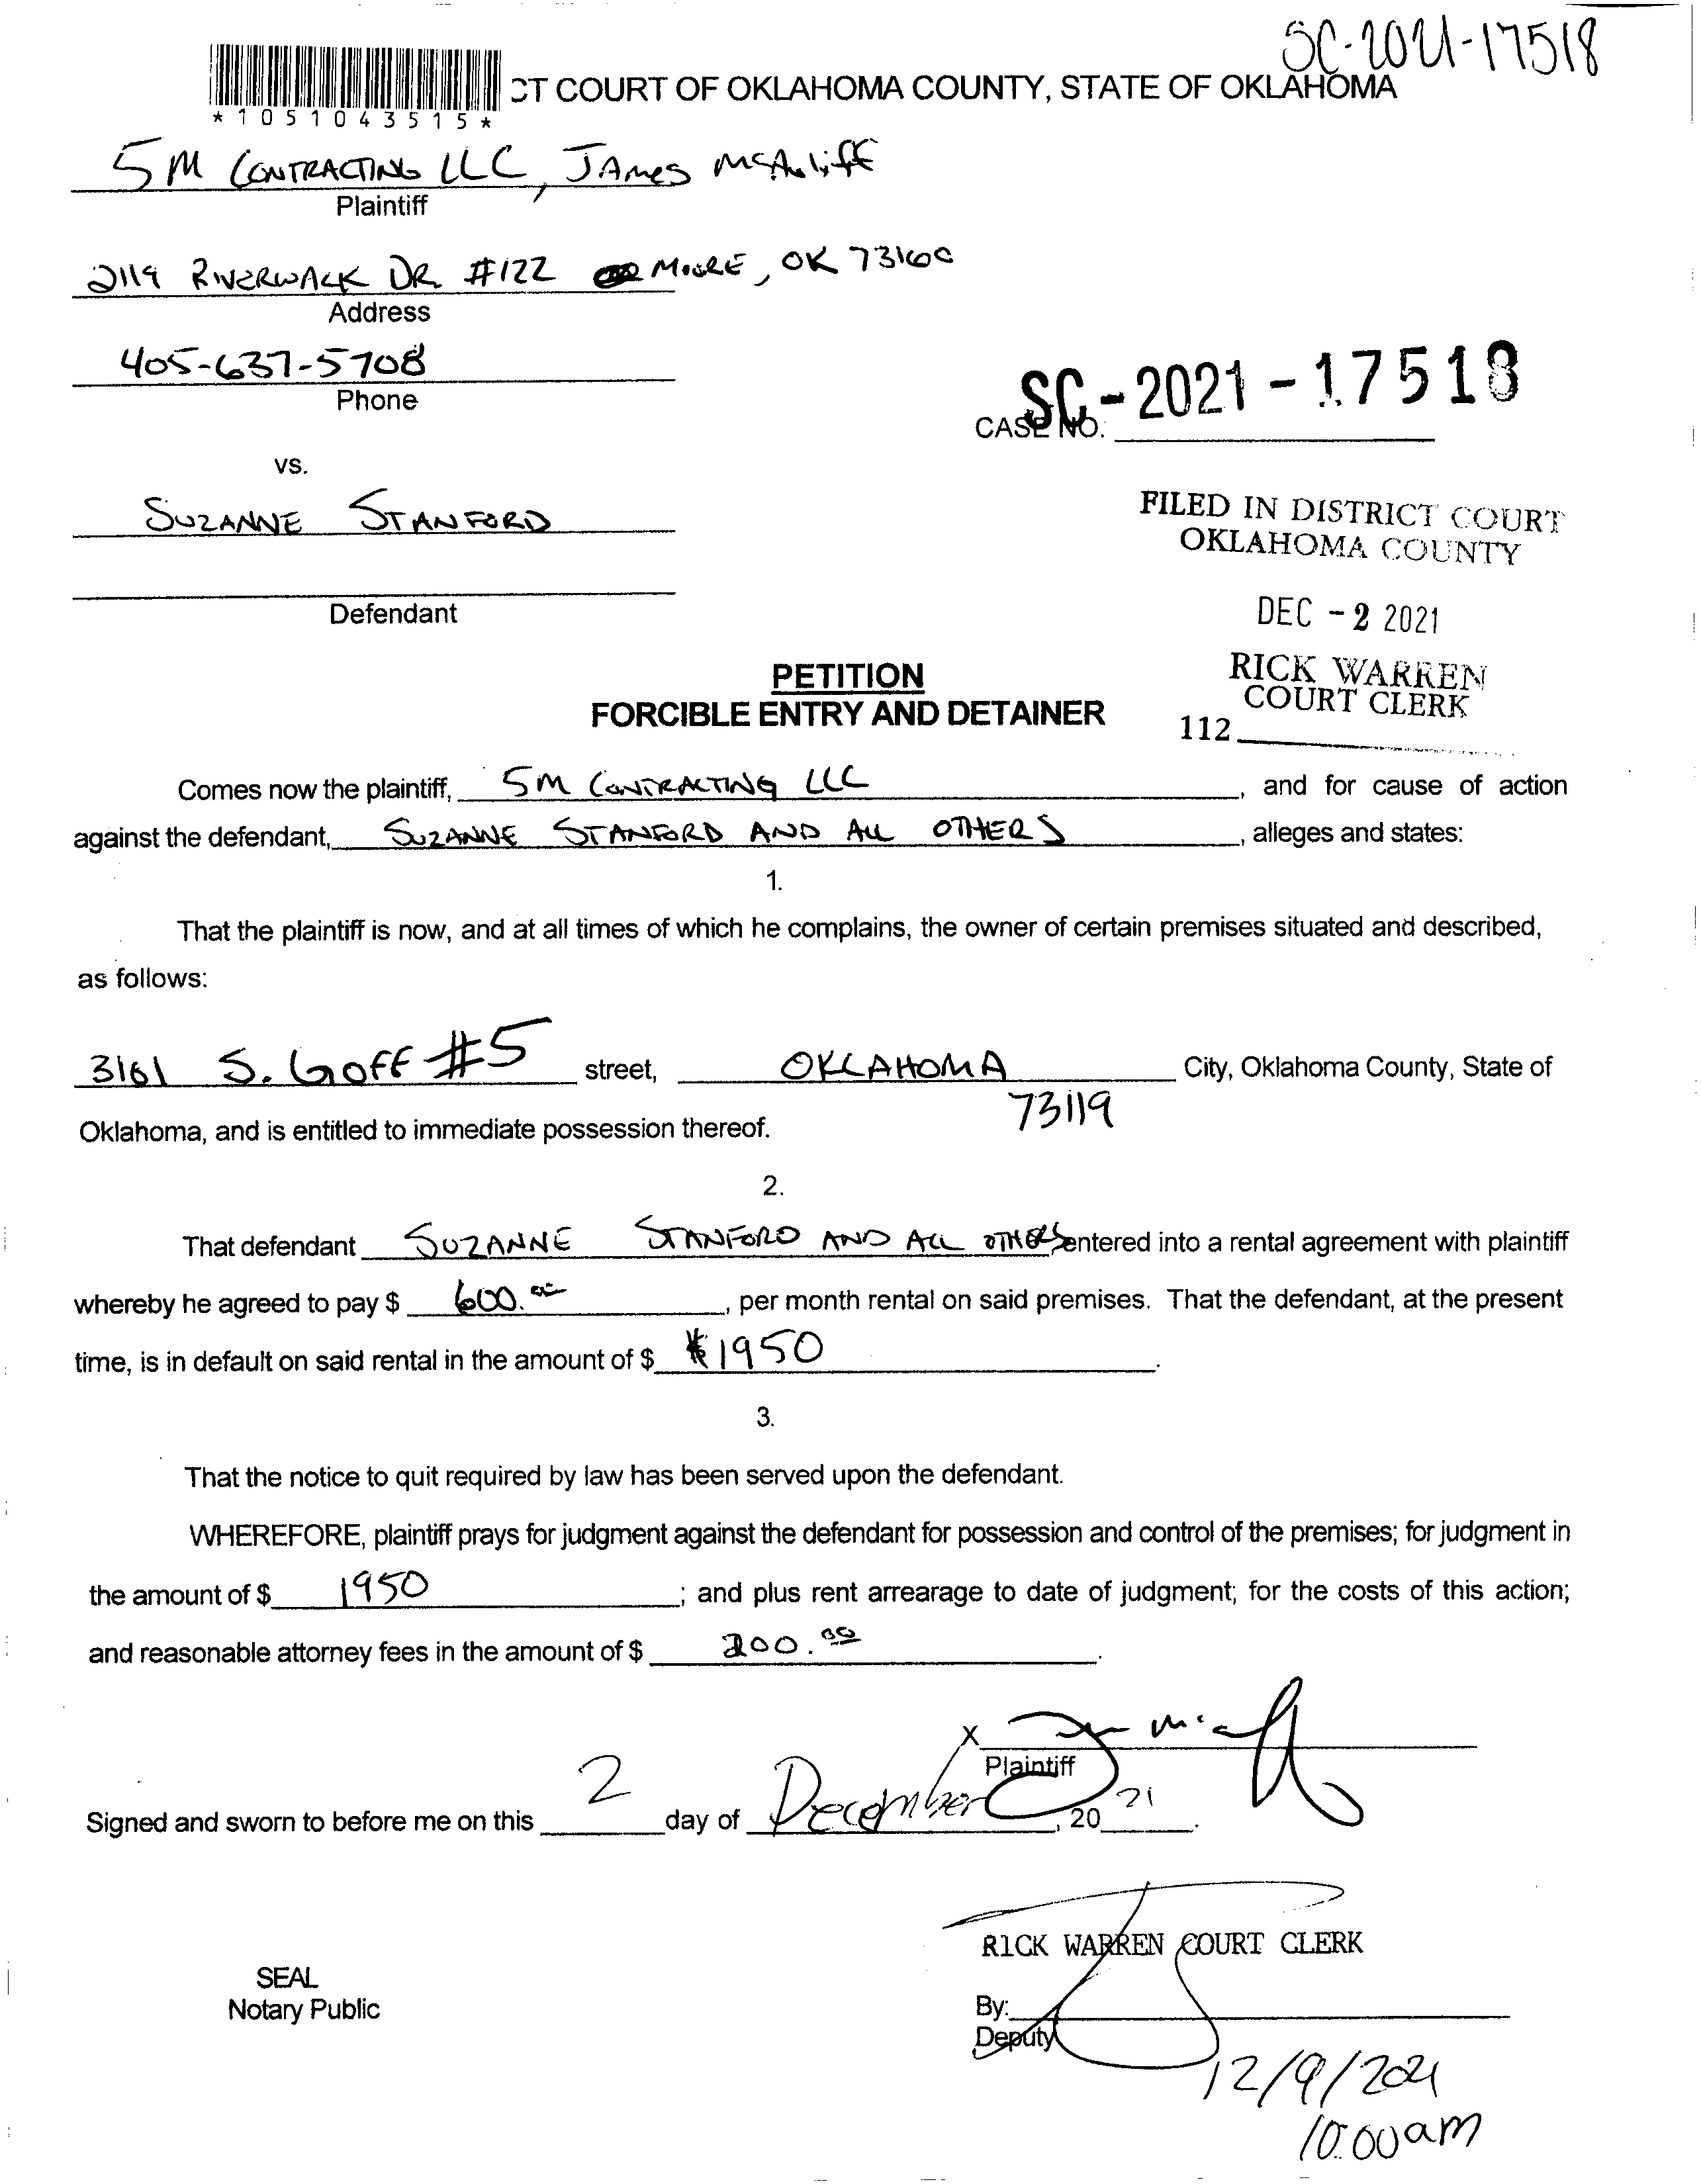 SC-2021-17518
CT COURT OF OKLAHOMA COUNTY, STATE OF OKLAHOMA
*1051043515*
5M CONTRACTING LLC, JAMES McAuliff
Plaintiff
2119 RIVERWALK DR. #122 MOORE, OK 73160
Address
405-637-5708
Phone
SC-2021-17518
CASE NO.
vs.
SUZANNE STANFORD
FILED IN DISTRICT COURT
OKLAHOMA COUNTY
Defendant
DEC -2 2021
PETITION
RICK WARREN
COURT CLERK
FORCIBLE ENTRY AND DETAINER
112
Comes now the plaintiff, 5M CONTRACTING LLC, and for cause of action
against the defendant, SUZANNE STANFORD AND ALL OTHERS, alleges and states:
1.
That the plaintiff is now, and at all times of which he complains, the owner of certain premises situated and described,
as follows:
3161 S. GOFF #5 street, OKLAHOMA City, Oklahoma County, State of
73119
Oklahoma, and is entitled to immediate possession thereof.
2.
That defendant SUZANNE STANFORD AND ALL OTHERS entered into a rental agreement with plaintiff
whereby he agreed to pay $ 600.00, per month rental on said premises. That the defendant, at the present
time, is in default on said rental in the amount of $ $1950.
3.
That the notice to quit required by law has been served upon the defendant.
WHEREFORE, plaintiff prays for judgment against the defendant for possession and control of the premises; for judgment in
the amount of $ 1950; and plus rent arrearage to date of judgment; for the costs of this action;
and reasonable attorney fees in the amount of $ 200.00.
X
Plaintiff
Signed and sworn to before me on this 2 day of December, 20 21.
RICK WARREN COURT CLERK
SEAL
Notary Public
By:
Deputy
12/9/2021
10:00am